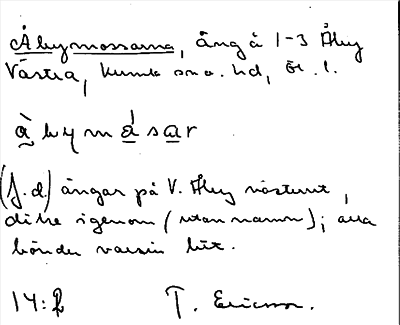 Åbymossarna, äng å 1-3 Åby
Västra, Kumla sn o. hd, Ör. l.
å̀ b y m ǻ s a r
(f.d.) ängar på V. Åby västerut,
dike igenom (utan namn); alla
bönder varsin bit.
14: T. Ericsson.